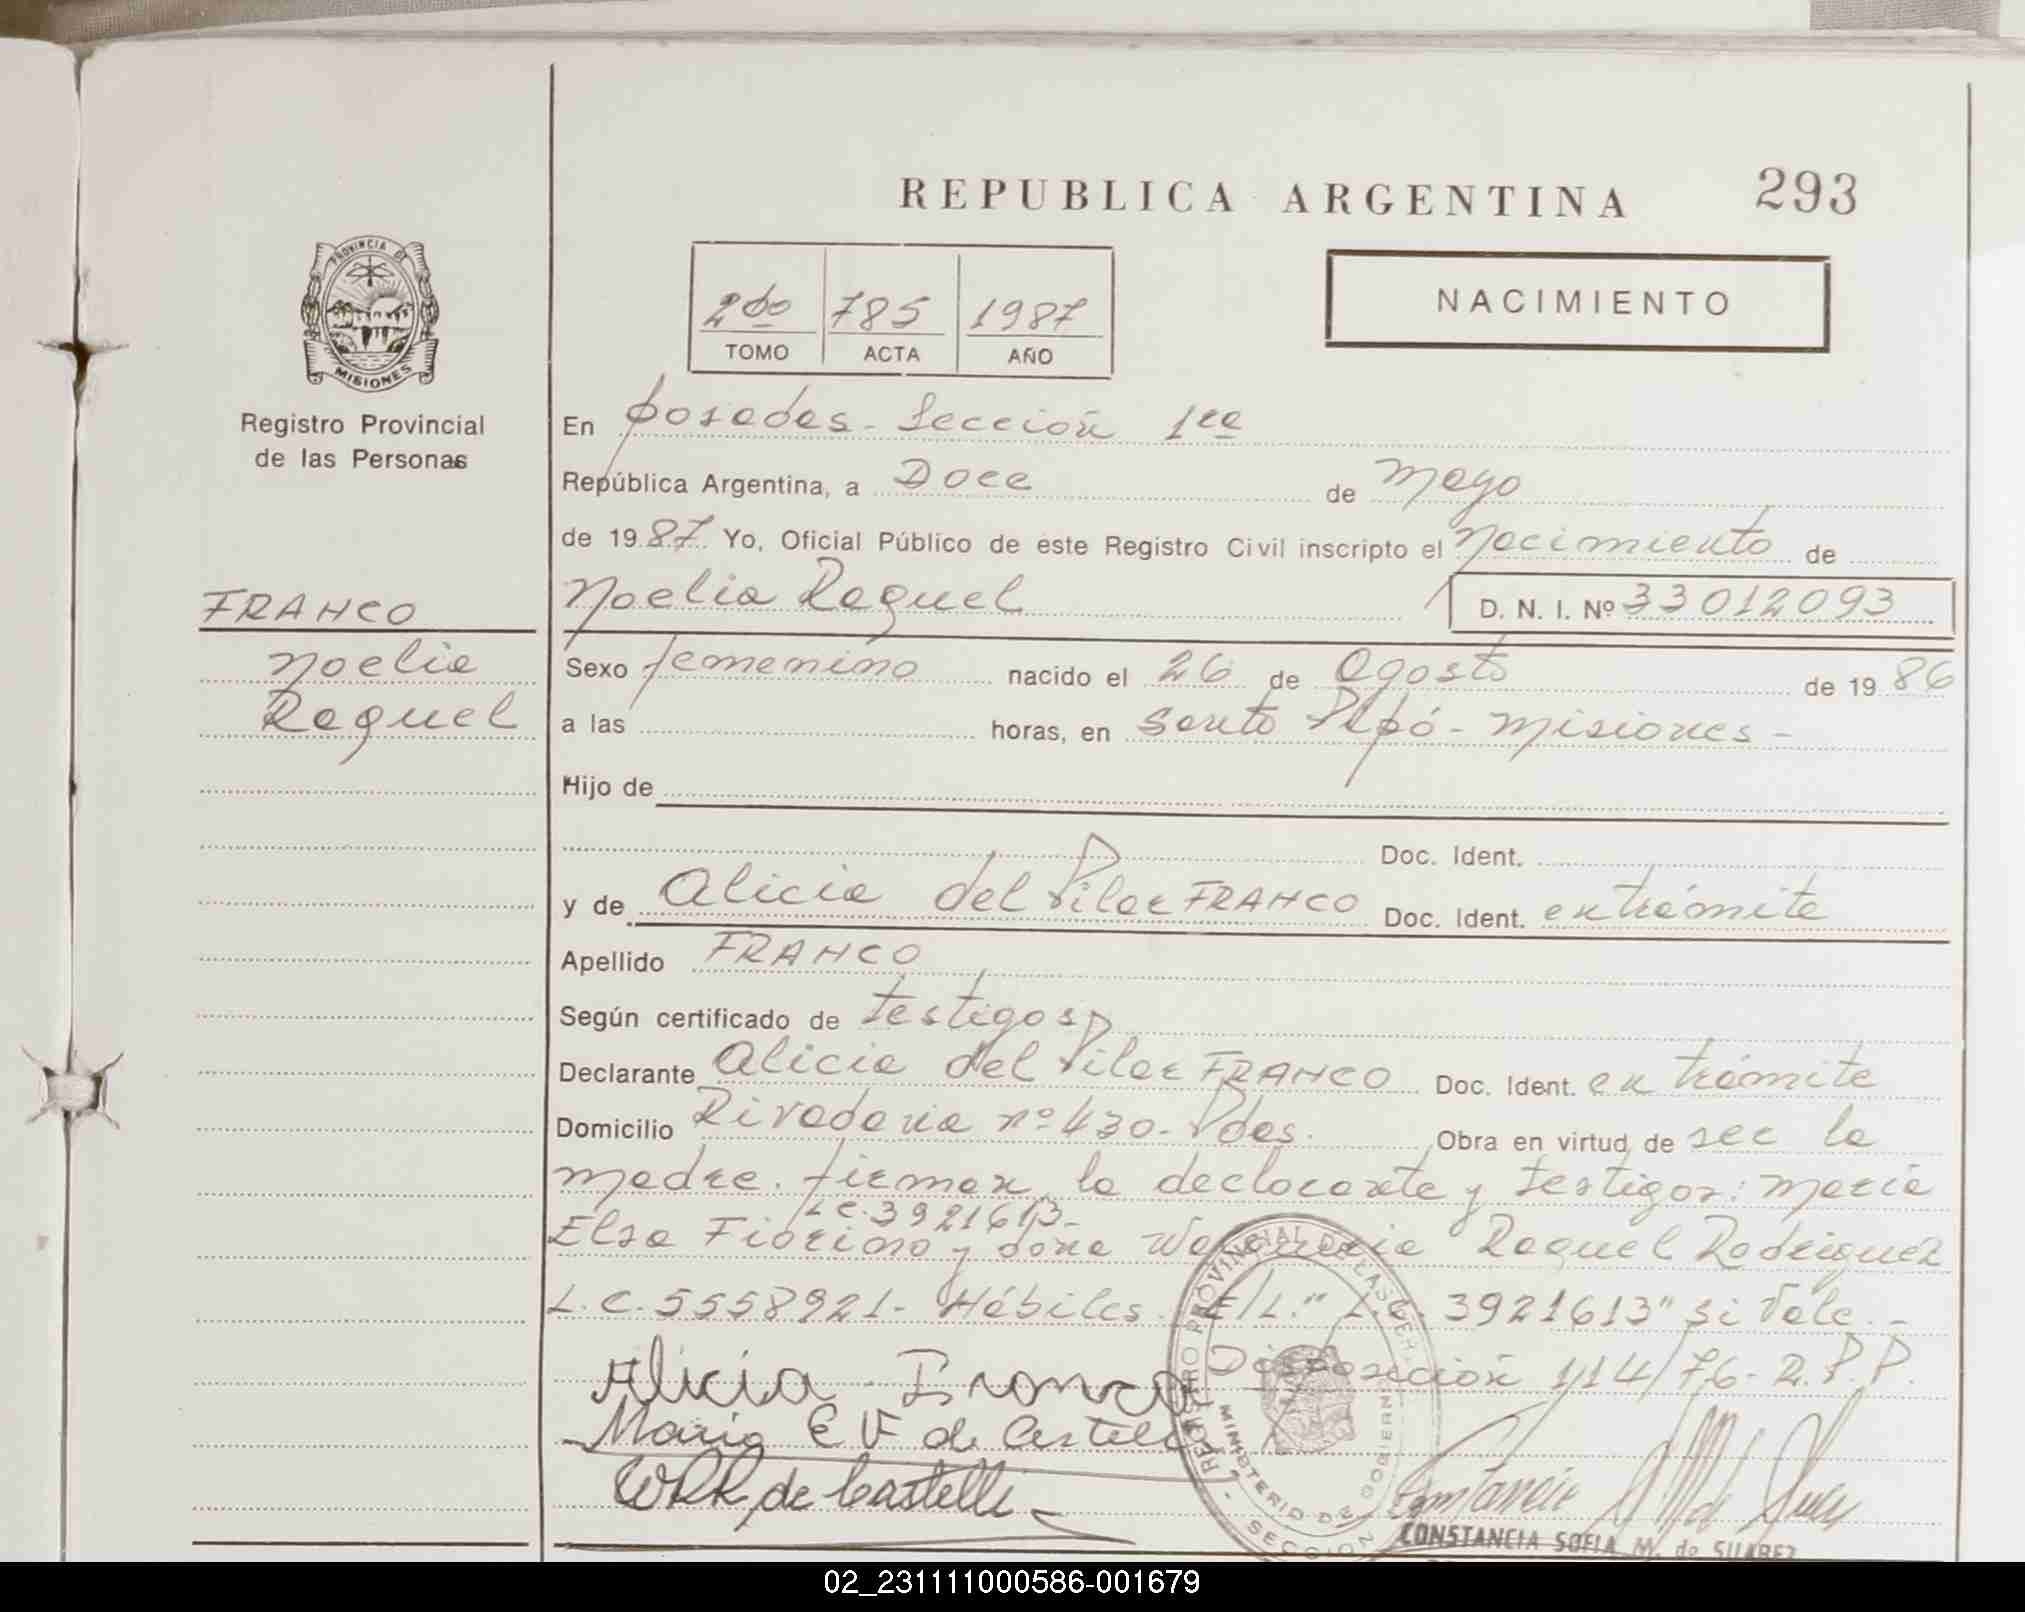 REPUBLICA ARGENTINA 293
PROVINCIA DE
MISIONES
Registro Provincial
de las Personas
2do 785 1987
TOMO ACTA AÑO
NACIMIENTO
En Posadas - Sección 1ra
República Argentina, a Doce de Mayo
de 1987 Yo, Oficial Público de este Registro Civil inscripto el Nacimiento de
FRANCO
Noelia
Raquel
Noelia Raquel D. N. I. Nº 33012093
Sexo femenino nacido el 26 de Agosto de 1986
a las horas, en Santo Pipó - Misiones -
Hijo de
Doc. Ident.
y de Alicia del Pilar FRANCO Doc. Ident. en trámite
Apellido FRANCO
Según certificado de testigos
Declarante Alicia del Pilar FRANCO Doc. Ident. en trámite
Domicilio Rivadavia nº 430 - Pdas. Obra en virtud de ser la
madre. firman la declarante y testigos: María
L.C. 3921613-
Elsa Fiorino y doña Raquel Rodriguez
L.C. 5558921- Hábiles. E/L." L.C. 3921613" Si Vale. -
Disposición 114/76- R.P.P.
Alicia Franco
María E F de Castelli
WRR de Castelli
REGISTRO PROVINCIAL DE LAS PER
MINISTERIO DE GOBIERNO
SECCION
CONSTANCIA SOFIA M. de SUAREZ
02_231111000586-001679